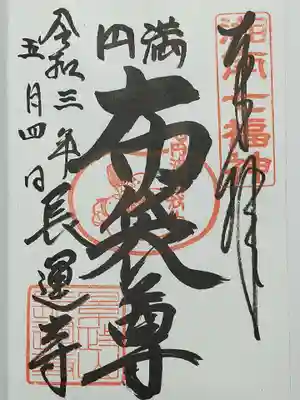 奉拝
湘南七福神
円満
布袋尊
令和三年
五月四日
長運寺